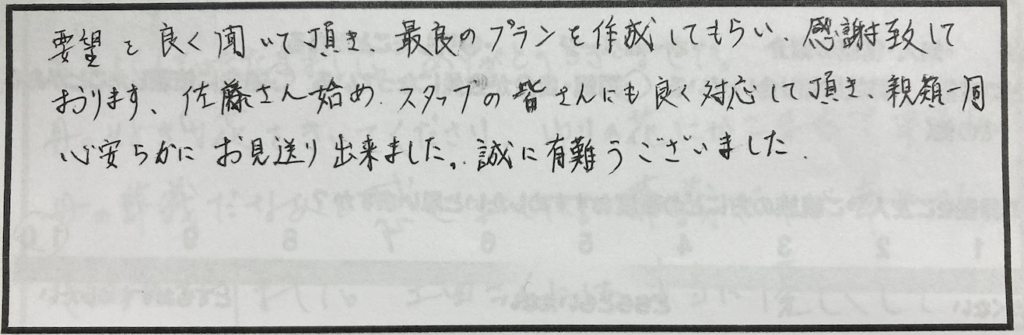 要望を良く聞いて頂き、最良のプランを作成してもらい、感謝致して
おります、佐藤さん始め、スタッフの皆さんにも良く対応して頂き、親類一同
心安らかにお見送り出来ました。誠に有難うございました.